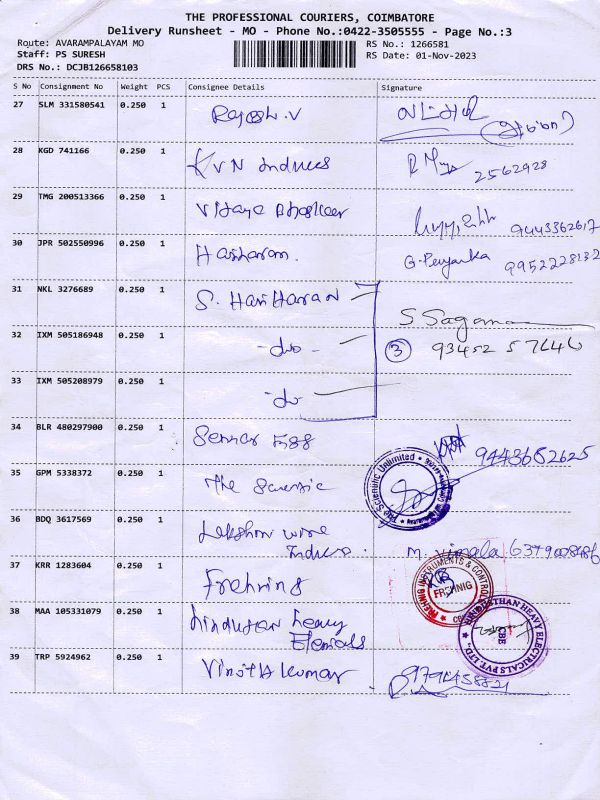 THE PROFESSIONAL COURIERS, COIMBATORE
Delivery Runsheet - MO - Phone No.:0422-3505555 - Page No.:3
Route: AVARAMPALAYAM MO
RS No.: 1266581
Staff: PS SURESH
RS Date: 01-Nov-2023
DRS No.: DCJB126658103
S No Consignment No Weight PCS Consignee Details Signature
27 SLM 331580541 0.250 1 Rajesh.V
28 KGD 741166 0.250 1 KVN 2562928
29 TMG 200513366 0.250 1 9443362617
30 JPR 502550996 0.250 1 Hariharan. G. Priyanka 9952228132
31 NKL 3276689 0.250 1 S. Hariharan
S Sagama
32 IXM 505186948 0.250 1 - do - 3 93452 57646
33 IXM 505208979 0.250 1 - do
34 BLR 480297900 0.250 1 9443652625
35 GPM 5338372 0.250 1 The
36 BDQ 3617569 0.250 1 Lakshmi wire
M. Vimala
37 KRR 1283604 0.250 1 Frehnig
FREHNIG INSTRUMENTS & CONTROLS
FREHNIG
38 MAA 105331079 0.250 1 hindustan heavy
HINDUSTHAN HEAVY ELECTRICALS PVT. LTD.
CBE
39 TRP 5924962 0.250 1 Vinothkumar